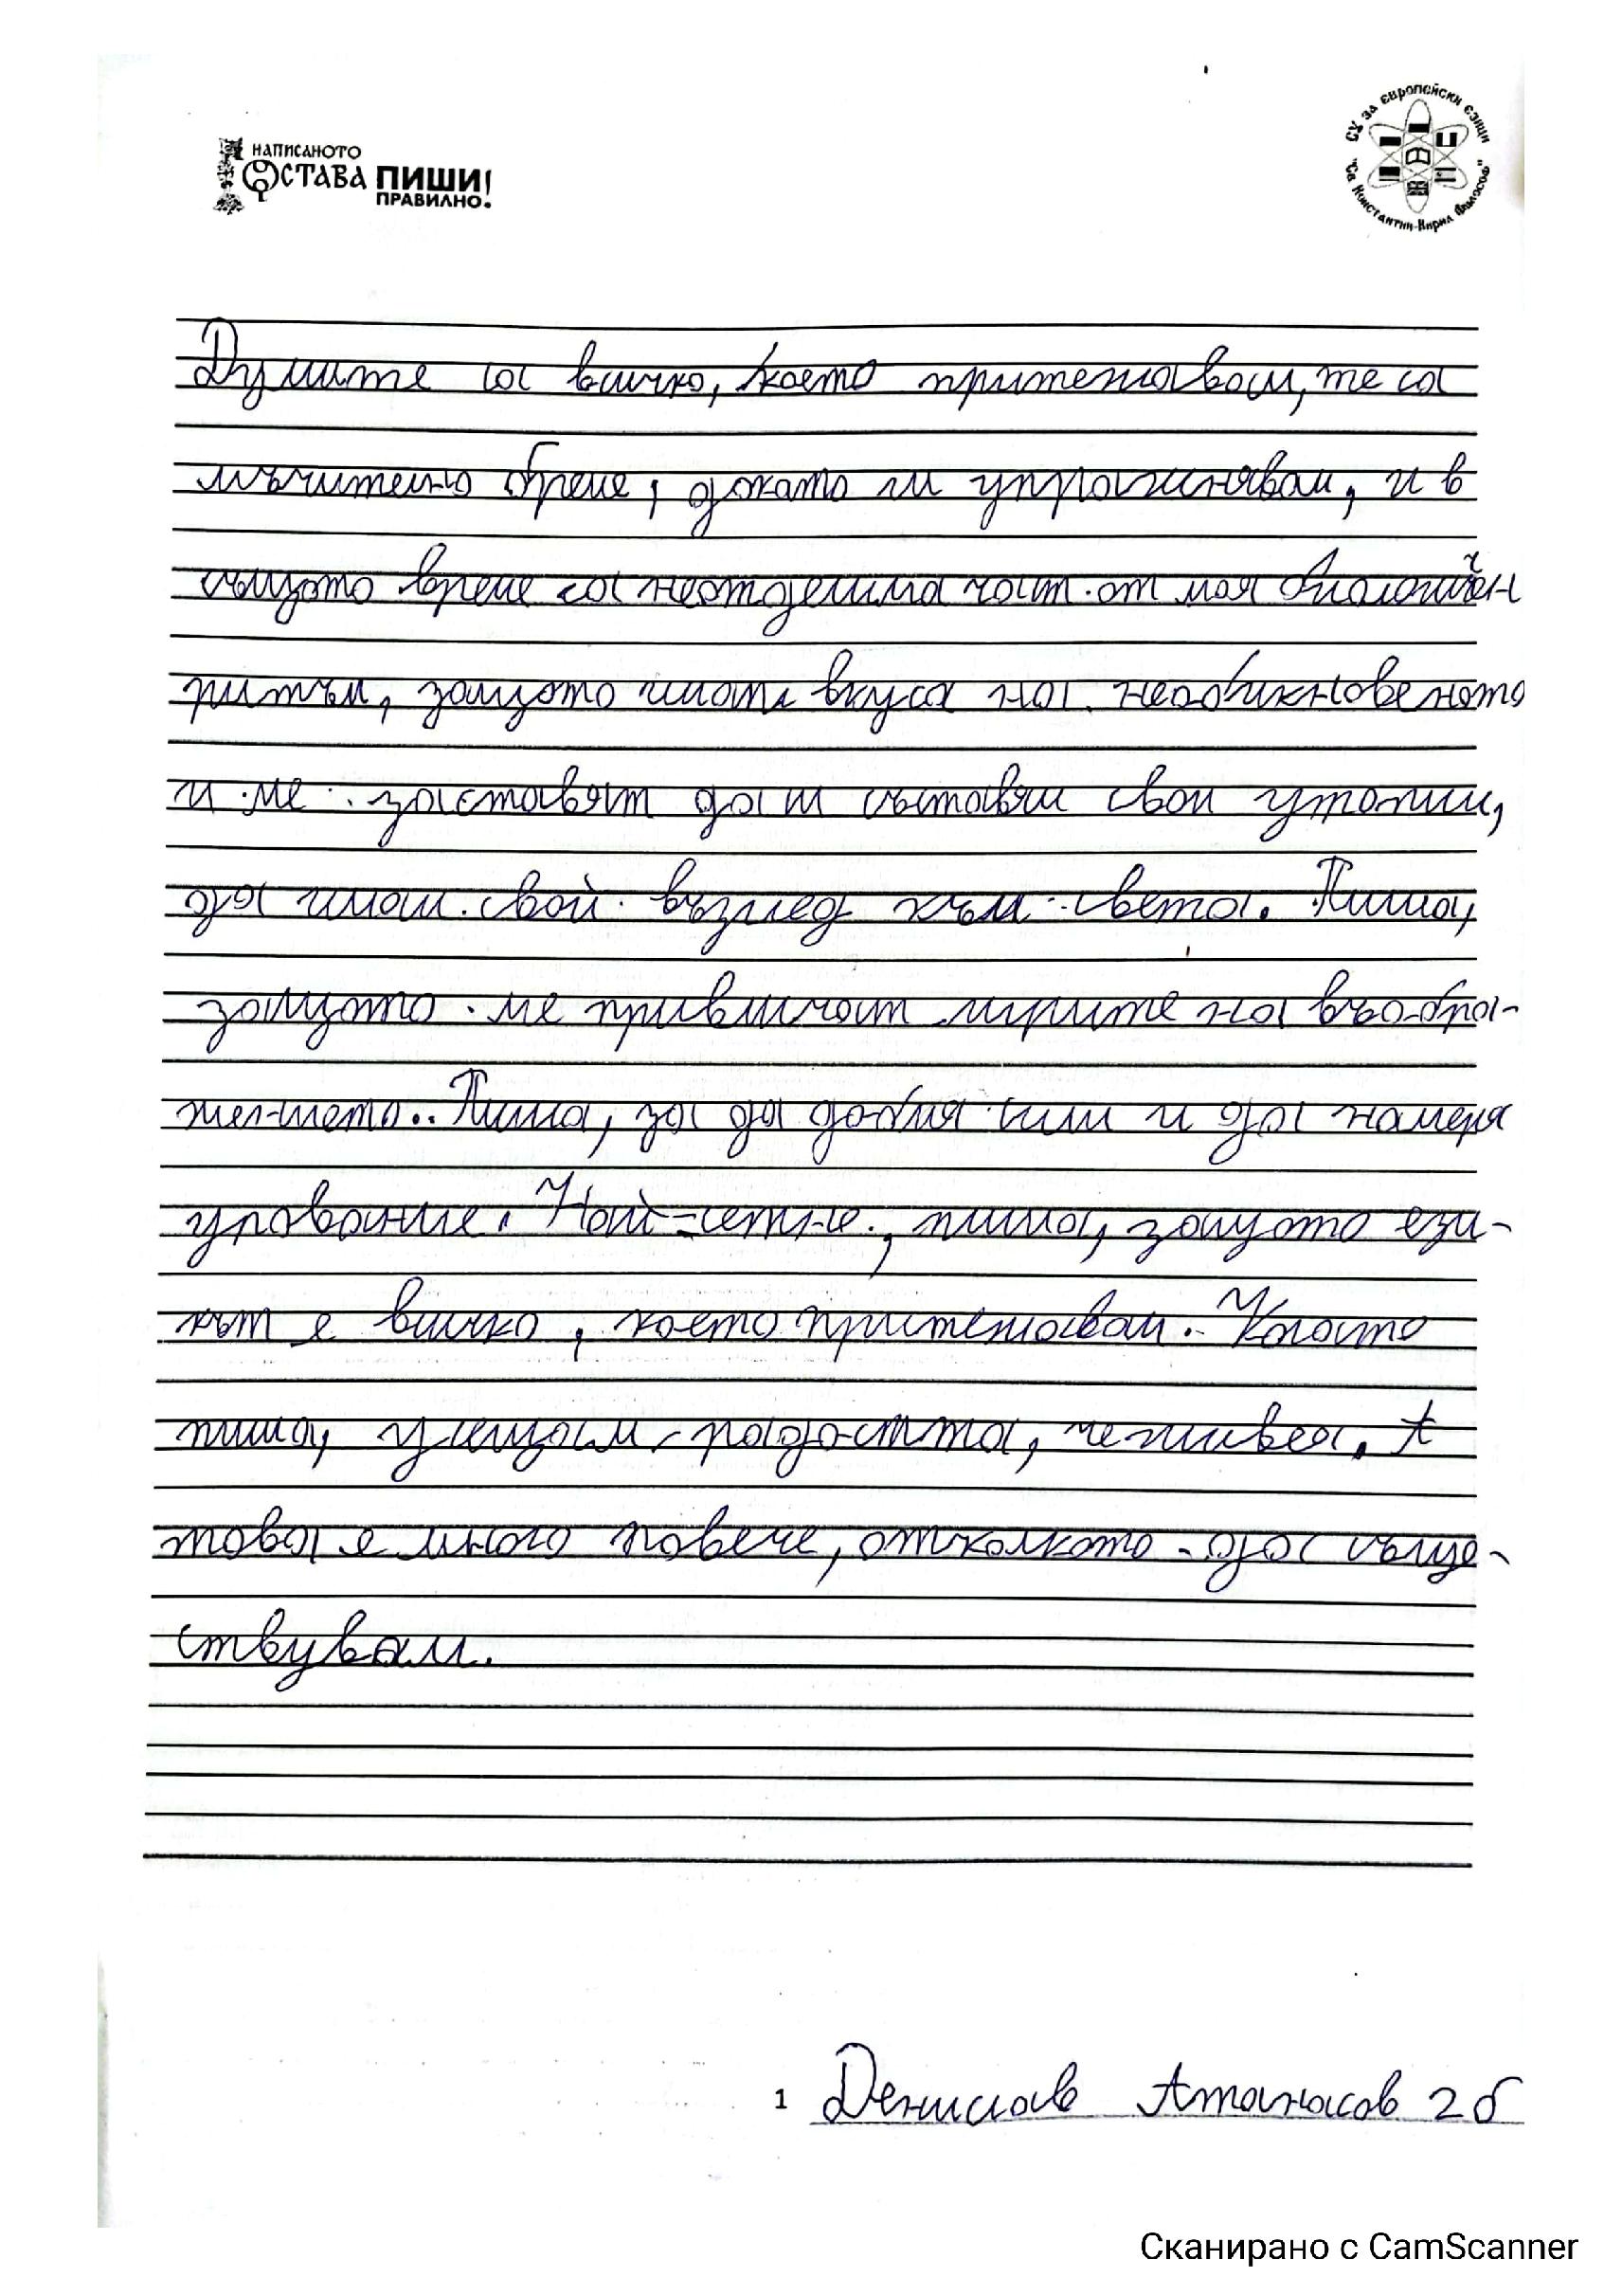 НАПИСАНОТО
ОСТАВА ПИШИ!
ПРАВИЛНО.
СУ за европейски езици
"Св. Константин-Кирил Философ"
Думите са всичко, което притежавам, те са
мъчително бреме, докато ги упражнявам, и в
същото време са неотделима част от моя биологичен
ритъм, защото имат вкуса на необикновеното
и ме заставят да си съставям свои утопии,
да имам свой възглед към света. Пиша,
защото ме привличат игрите на въобра-
жението. Пиша, за да добия сили и да намеря
упование. Най-сетне, пиша, защото ези-
кът е всичко, което притежавам. Когато
пиша, усещам радостта, че живея. А
това е много повече, отколкото да съще-
ствувам.
1 Денислав Атанасов 2б
Сканирано с CamScanner